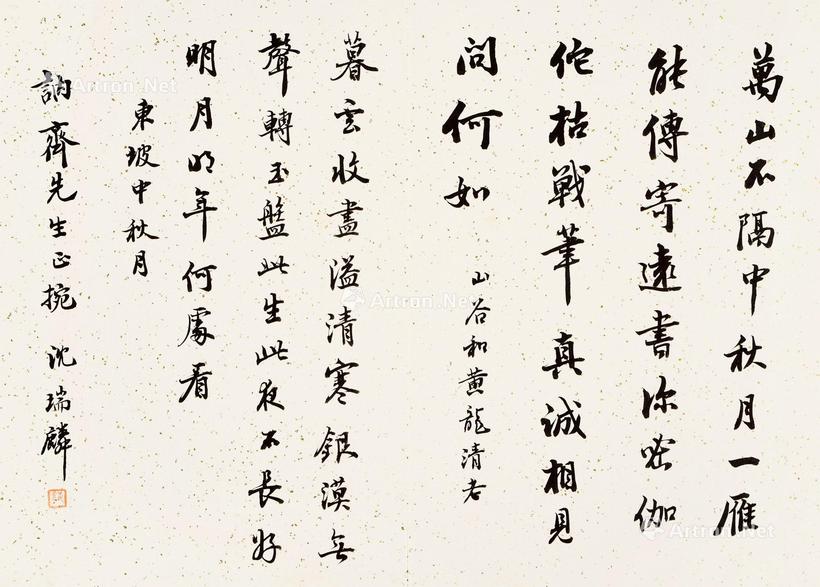 萬山不隔中秋月一雁
能傳寄遠書深密伽
佗枯戰筆真誠相見
問何如
山谷和黄龍清老
暮雲收盡溢清寒銀漢無
聲轉玉盤此生此夜不長好
明月明年何處看
東坡中秋月
訥齊先生正捥 沈瑞麟
Artron.Net
Artron.Net
Artron.Net